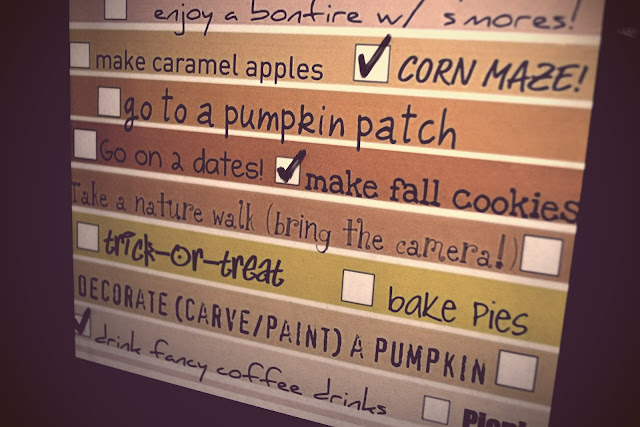 enjoy a bonfire w/ s'mores!
make caramel apples CORN MAZE!
go to a pumpkin patch
Go on 2 dates! make fall cookies
Take a nature walk (bring the camera!)
trick-or-treat bake pies
DECORATE (CARVE/PAINT) A PUMPKIN
drink fancy coffee drinks